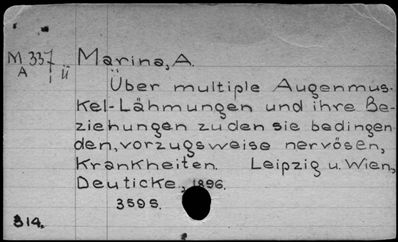 M 337 Marina, A.
A i ü
Über multiple Augenmus-
kel-Lähmungen und ihre Be-
ziehungen zu den sie bedingen
den, vorzugsweise nervösen,
Krankheiten. Leipzig u. Wien,
Deuticke, 1896.
359 S.
314.